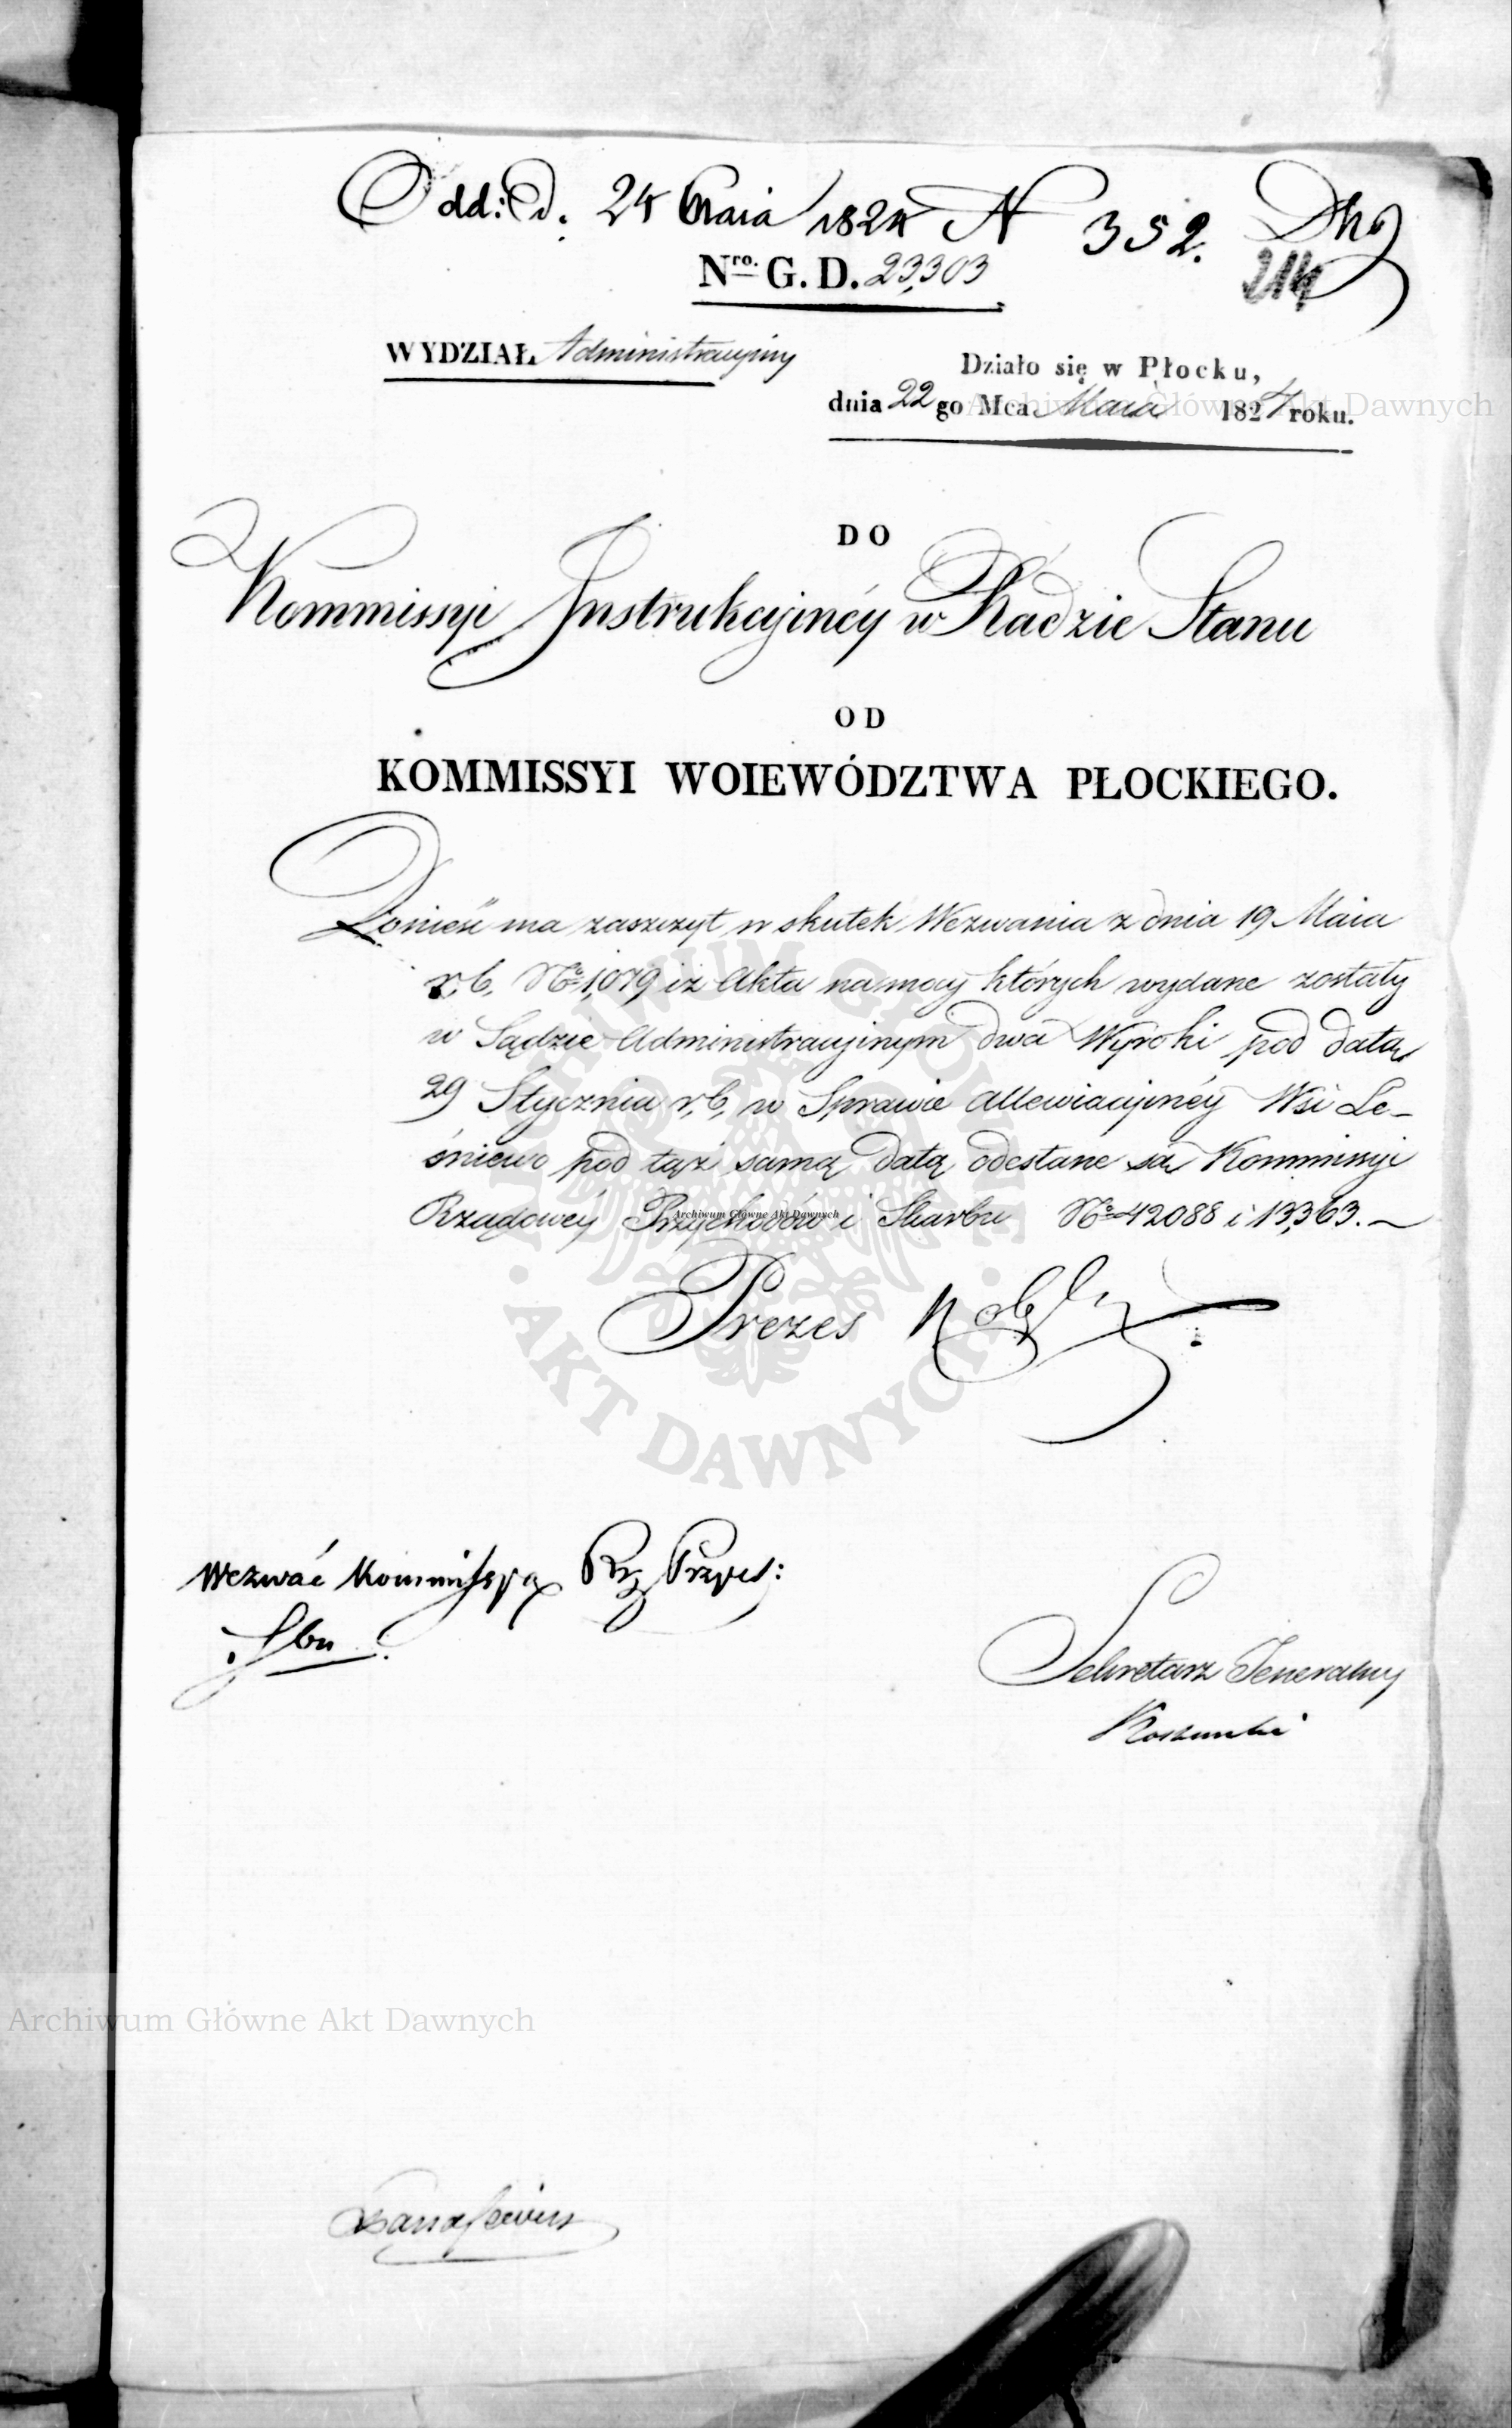 Odd: D. 24 Maia 1824 N 352.
214
Nro. G. D. 23,303
WYDZIAŁ Administracyjny
Działo się w Płocku,
dnia 22 go Mca Maia 1824 roku.
Archiwum Główne Akt Dawnych
DO
Kommissyi Instrukcyjnéy w Radzie Stanu
OD
KOMMISSYI WOIEWÓDZTWA PŁOCKIEGO.
Donieść ma zaszczyt w skutek Wezwania z dnia 19 Maia
r. b. No 1,079 iż Akta na mocy których wydane zostały
w Sądzie Administracyjnym dwa Wyroki pod datą
29 Stycznia r. b. w Sprawie Allewiacyjnéy Wsi Le-
śniewo pod tąż samą datą odesłane są Kommissyi
Rządowéy Przychodów i Skarbu No 42088 i 13,363.
Archiwum Główne Akt Dawnych
ARCHIWUM GŁÓWNE • AKT DAWNYCH •
Prezes
Wezwać Kommissyą Rz Przych:
i Sbu
Sekretarz Jeneralny
Archiwum Główne Akt Dawnych